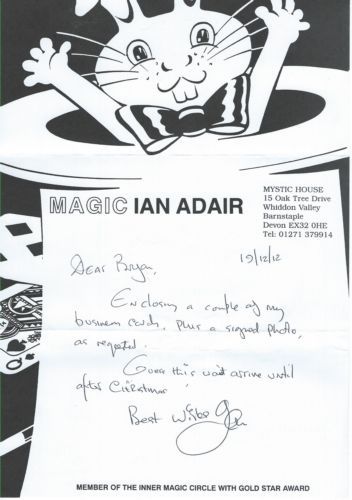 MAGIC IAN ADAIR
MYSTIC HOUSE
15 Oak Tree Drive
Whiddon Valley
Barnstaple
Devon EX32 0HE
Tel: 01271 379914
19/12/12
Dear Bryan,
Enclosing a couple of my
business cards, plus a signed photo,
as requested.
Guess this wont arrive until
after Christmas
Best Wishes Ian
MEMBER OF THE INNER MAGIC CIRCLE WITH GOLD STAR AWARD